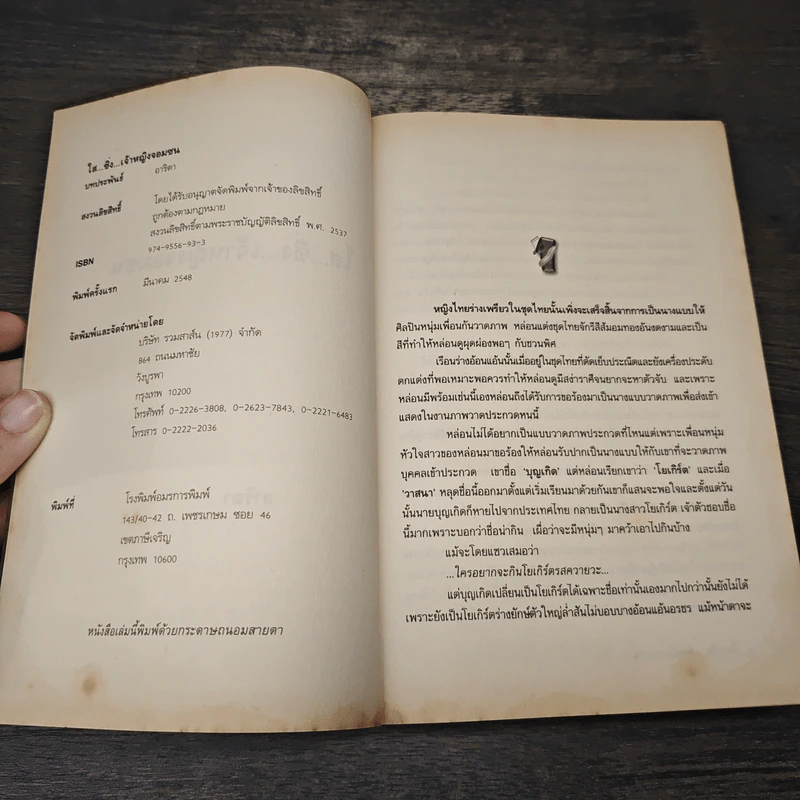 ใส...ซิ่ง...เจ้าหญิงจอมซน
บทประพันธ์ อาริตา
สงวนลิขสิทธิ์ โดยได้รับอนุญาตจัดพิมพ์จากเจ้าของลิขสิทธิ์
ถูกต้องตามกฎหมาย
สงวนลิขสิทธิ์ตามพระราชบัญญัติลิขสิทธิ์ พ.ศ. 2537
ISBN 974-9556-93-3
พิมพ์ครั้งแรก มีนาคม 2548
จัดพิมพ์และจัดจำหน่ายโดย
บริษัท รวมสาส์น (1977) จำกัด
864 ถนนมหาชัย
วังบูรพา
กรุงเทพ 10200
โทรศัพท์ 0-2226-3808, 0-2623-7843, 0-2221-6483
โทรสาร 0-2222-2036
พิมพ์ที่ โรงพิมพ์อมรการพิมพ์
143/40-42 ถ. เพชรเกษม ซอย 46
เขตภาษีเจริญ
กรุงเทพ 10600
หนังสือเล่มนี้พิมพ์ด้วยกระดาษถนอมสายตา
1
หญิงไทยร่างเพรียวในชุดไทยนั้นเพิ่งจะเสร็จสิ้นจากการเป็นนางแบบให้
ศิลปินหนุ่มเพื่อนกันวาดภาพ หล่อนแต่งชุดไทยจักรีสีส้มอมทองอันงดงามและเป็น
สีที่ทำให้หล่อนดูผุดผ่องพอๆ กับชวนพิศ
เรือนร่างอ้อนแอ้นนั้นเมื่ออยู่ในชุดไทยที่ตัดเย็บประณีตและยังเครื่องประดับ
ตกแต่งที่พอเหมาะพอควรทำให้หล่อนดูมีสง่าราศีจนยากจะหาตัวจับ และเพราะ
หล่อนมีพร้อมเช่นนี้เองหล่อนถึงได้รับการขอร้องมาเป็นนางแบบวาดภาพเพื่อส่งเข้า
แสดงในงานภาพวาดประกวดหนนี้
หล่อนไม่ได้อยากเป็นแบบวาดภาพประกวดที่ไหนแต่เพราะเพื่อนหนุ่ม
หัวใจสาวของหล่อนมาขอร้องให้หล่อนรับปากเป็นนางแบบให้กับเขาที่จะวาดภาพ
บุคคลเข้าประกวด เขาชื่อ 'บุญเกิด' แต่หล่อนเรียกเขาว่า 'โยเกิร์ต' และเมื่อ
'วาสนา' หลุดชื่อนี้ออกมาตั้งแต่เริ่มเรียนมาด้วยกันเขาก็แสนจะพอใจและตั้งแต่วัน
นั้นนายบุญเกิดก็หายไปจากประเทศไทย กลายเป็นนางสาวโยเกิร์ต เจ้าตัวชอบชื่อ
นี้มากเพราะบอกว่าชื่อน่ากิน เผื่อว่าจะมีหนุ่มๆ มาคว้าเอาไปกินบ้าง
แม้จะโดนแซวเสมอว่า
...ใครอยากจะกินโยเกิร์ตรสควายวะ...
แต่บุญเกิดเปลี่ยนเป็นโยเกิร์ตได้เฉพาะชื่อเท่านั้นเองมากไปกว่านั้นยังไม่ได้
เพราะยังเป็นโยเกิร์ตร่างยักษ์ตัวใหญ่ล่ำสันไม่บอบบางอ้อนแอ้นอรชร แม้หน้าตาจะ